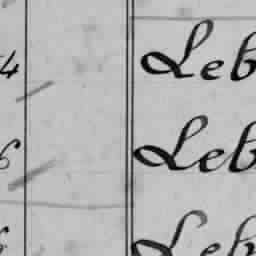 4 Leb
6 Leb
Leb